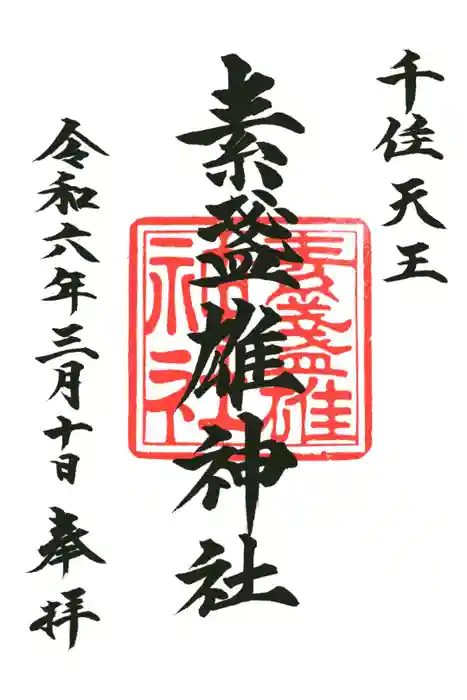 千住天王
素盞雄神社
素盞雄神社
令和六年三月十日 奉拝